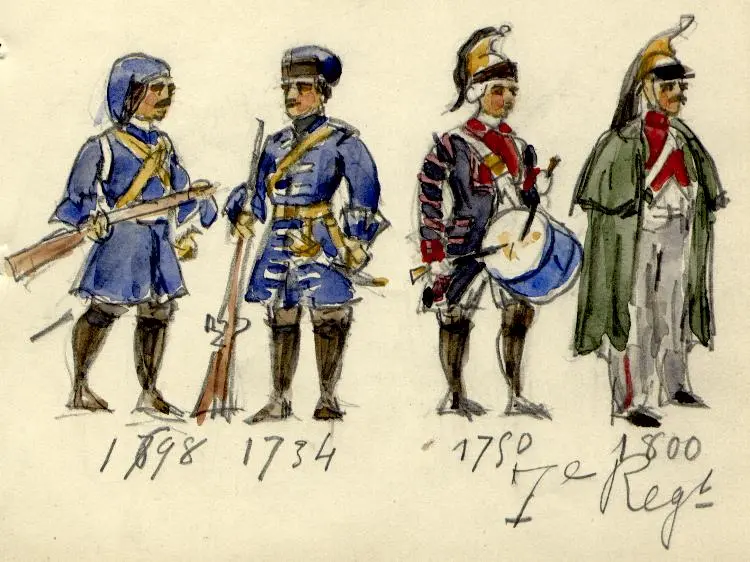 1698 1734 1750 1800
7e Regt